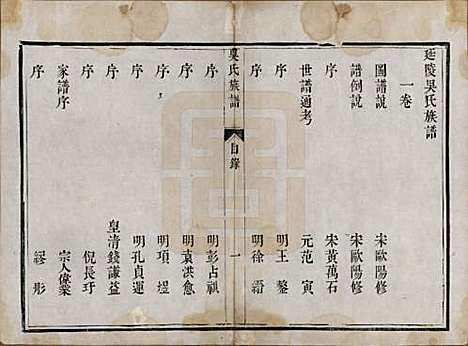 延陵吳氏族譜
一卷
圖譜說 宋歐陽修
譜例說 宋歐陽修
序 宋黃萬石
世譜通考 元范寅
序 明王鏊
序 明徐
吳氏族譜 目錄 一
序 明彭占祺
序 明袁洪愈
序 明項煜
序 明孔貞運
序 皇清錢謙益
序 倪長玗
家譜序 宗人偉業
序 繆彤